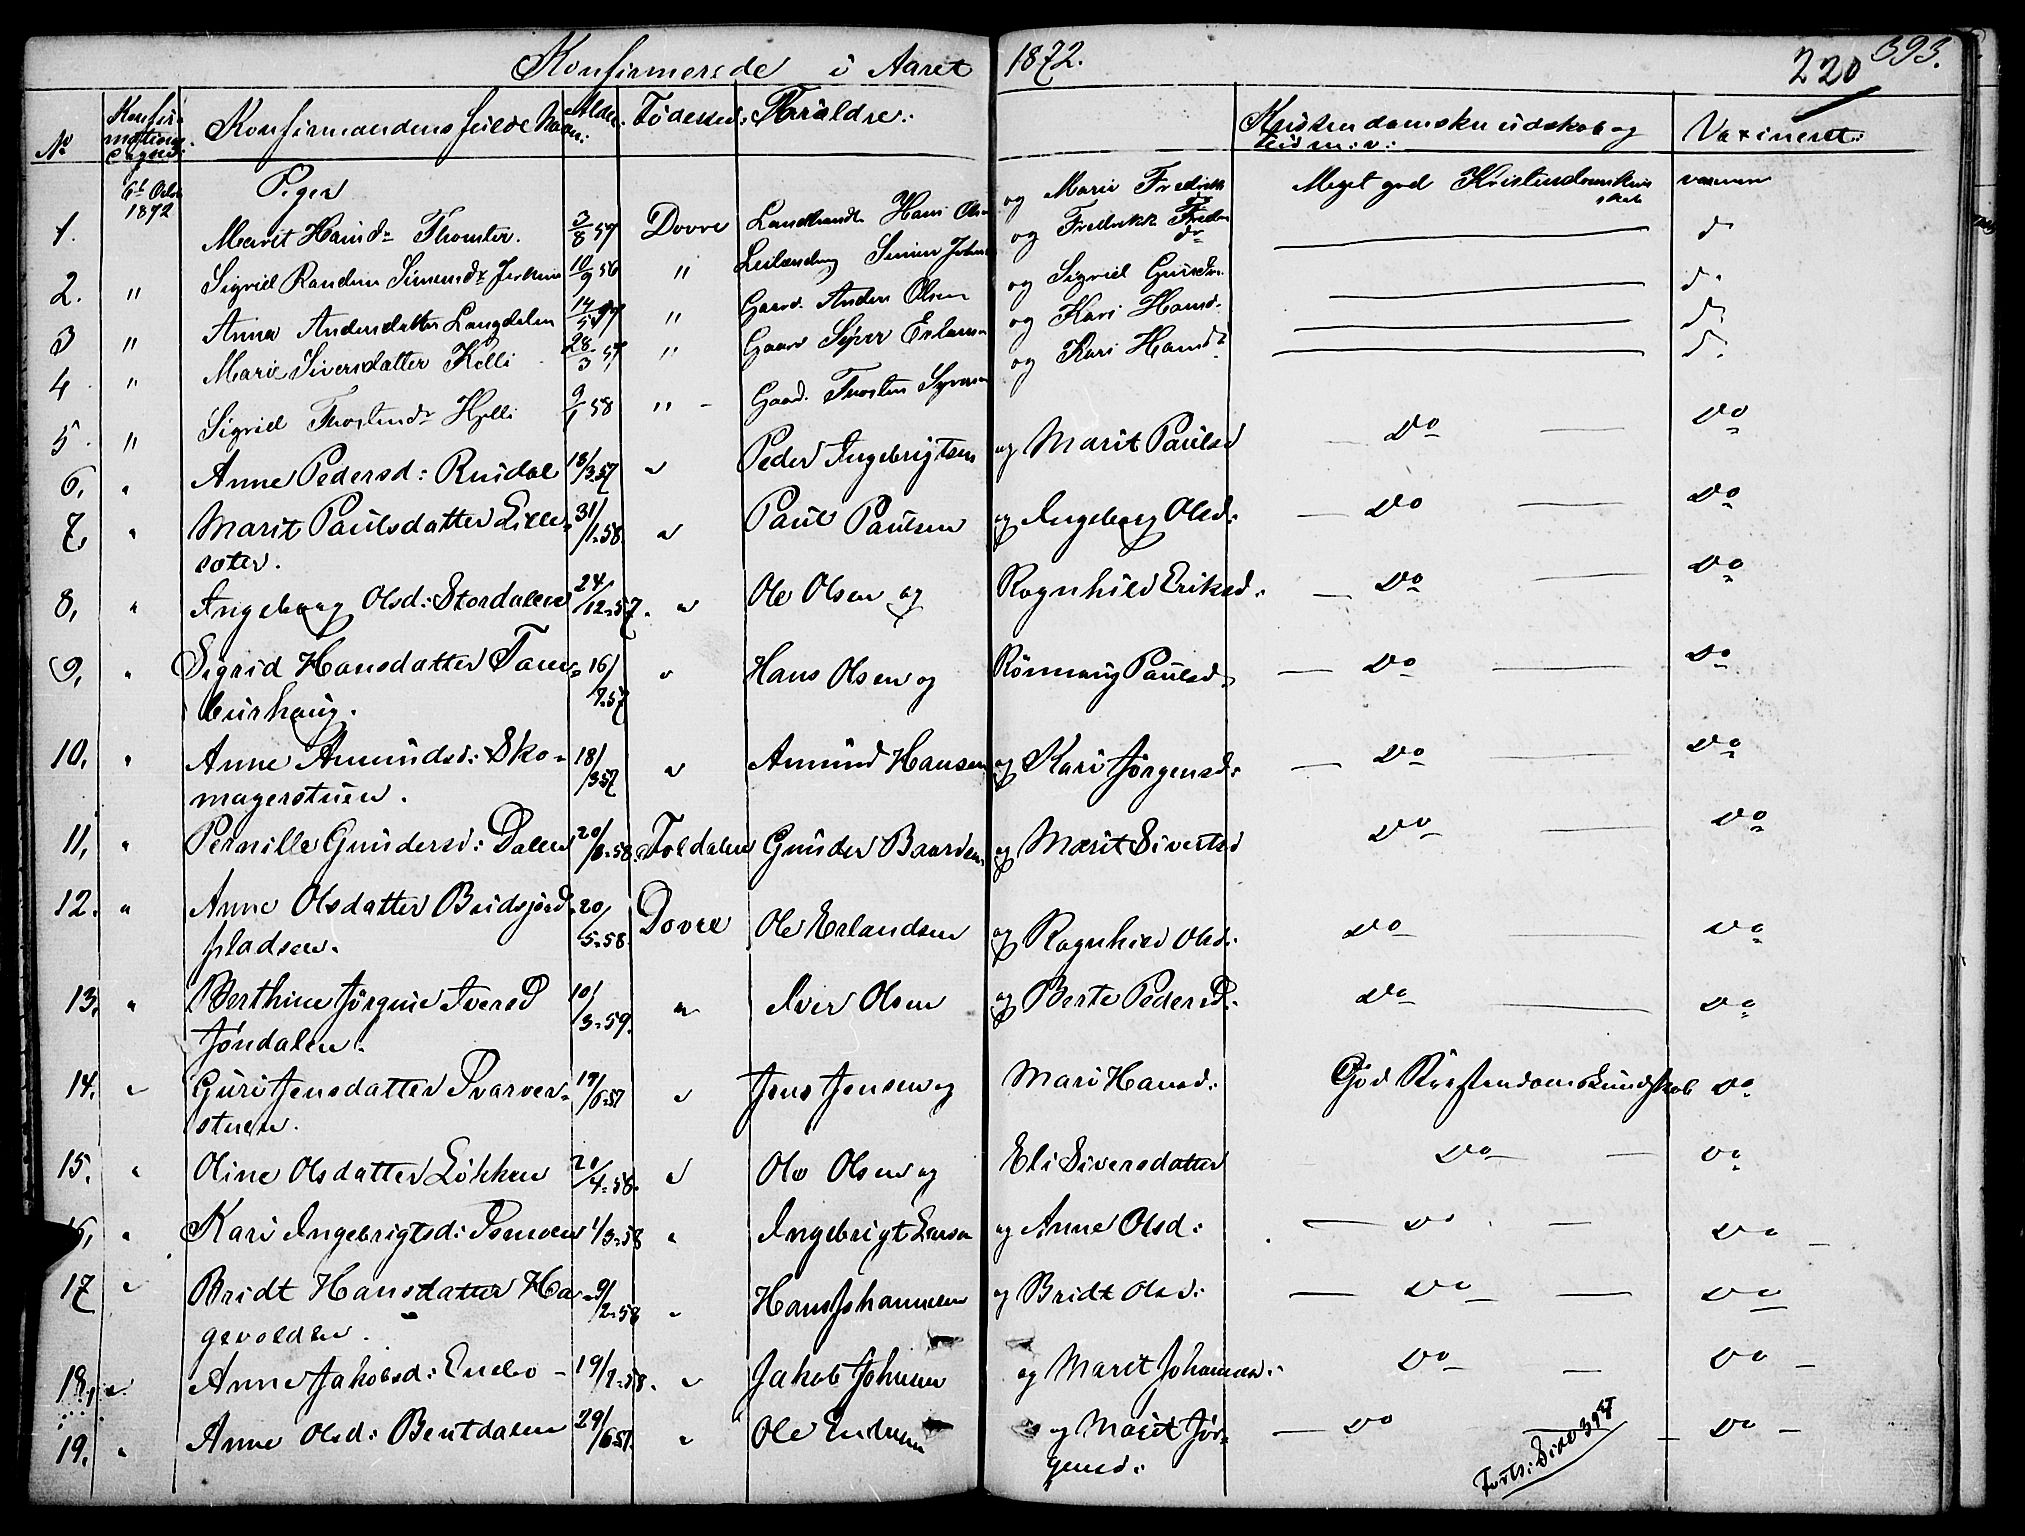 Konfirmerede i Aaret 1872. 220 393.
No Konfirmations Dagen: Konfirmandens fulde Navn: Alder. Fødested: Forældre: Kristendomskundskab og Vaxineret:
6t Octbr 1872 Piger
1. Marit Hansdr Thomter. 3/8 57 Dovre Hans Olsen og Marie Fredriksdr Meget god Kristendomskundskab
2. " Sigrid Simensdr Jerkin 10/9 56 " Simen Johns og Fredrikke d
3 " Anna Andersdatter Langdalen 14/5 57 " Gaard. Anders Olsen og Sigrid d.
4. " Marie Siversdatter Kolli 28/3 57 " Gaard Syver Erlandsen og Kari Hansd. d.
5. " Sigrid Thostensdr Hjelli 9/1 58 " - Gaard. Thosten Syversen og Kari Hansdr d.
6. " Anne Pedersd: Rusdal 18/3.57 " Peder Ingebrigtsen og Marit Paulsd — Do — Do
7. " Marit Paulsdatter Lille= 31/1.58. " Paul Paulsen og Ingeborg Olsd: — Do — Do
sæter.
8. " Ingeborg Olsd: Stordalen 24/12.57. " Ole Olsen og Ragnhild Eriksd. — Do — Do
9. " Sigrid Hansdatter Tam= 16/9.57 " Hans Olsen og Rønnaug Paulsd. — Do — Do
burhaug.
10. " Anne Amundsd: Sko= 18/3.57 " Amund Hansen og Kari Jørgensd: — Do — Do
magerstuen.
11. " Pernille Gundersd: Dalen 20/8.58. Foldalen Gunder Baardsen og Marit Sivertsd Do — Do
12. " Anne Olsdatter Budsjord= 20/5.58. Dovre Ole Erlandsen og Ragnhild Olsd: Do — Do
pladsen.
13. " Berthine Jørgine Iversd 10/3.59. " Iver Olsen og Berte Pedersd: Do — Do
Jøndalen.
14. " Guri Jensdatter Svarver= 17/6.57 " Jens Jensen og Mari Hansd: God Kristendomskundskab Do
stuen.
15. " Oline Olsdatter Løkken 21/4.58. " Ole Olsen og Eli Siversdatter Do — Do
16. " Kari Ingebrigtsd: 1/3.58 " Ingebrigt og Anne Olsd: — Do — Do —
17 " Bridt Hansdatter Ha= 9/2.58 " Hans Johannesen og Bridt Olsd: — Do — Do
gevolden.
18. " Anne Jakobsd: Endbo - 19/2.58. " Jakob Johnsen og Marit Johannesd: Do — Do —
19. " Anne Olsd: Bentdalen 29/6.57. " Ole og Marit Jør= — Do — Do —
gensd:
Forts: Side 394